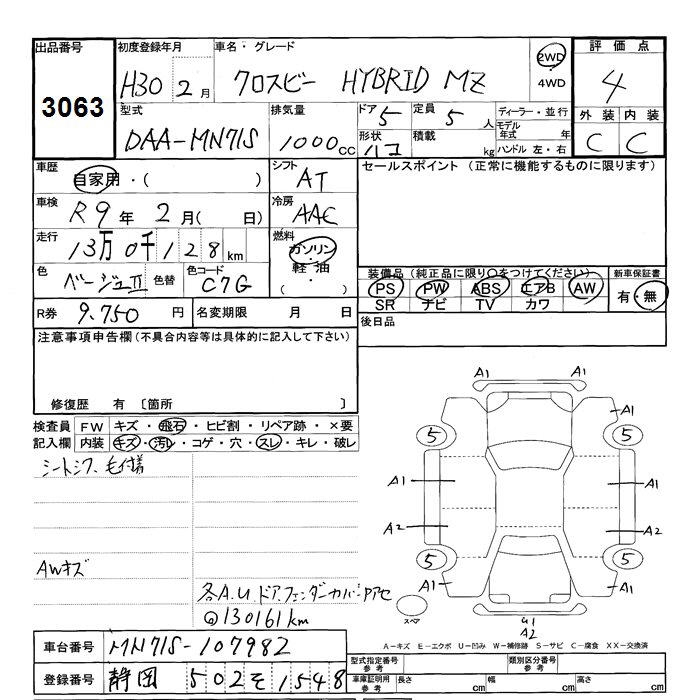 出品番号 初度登録年月 車名・グレード 2WD 評価点
3063 H30 2月 クロスビー HYBRID MZ 4WD 4
型式 排気量 ドア 5 定員 5人 ディーラー・並行 外装 内装
DAA-MN71S 1000cc 形状 ハコ 積載 kg モデル年式 年 C C
ハンドル 左・右
車歴 自家用・( ) シフト AT セールスポイント (正常に機能するものに限ります)
車検 R9年 2月( 日) 冷房 AAC
走行 13万0千128km 燃料 ガソリン・
色 ベージュII 色替 色コード C7G 軽油・ ( )
装備品(純正品に限り○をつけてください) 新車保証書
PS PW ABS エアB AW 有・無
SR ナビ TV カワ
R券 9.750円 名変期限 月 日 後日品
注意事項申告欄(不具合内容等は具体的に記入して下さい)
修復歴 有 〔箇所 〕
検査員 FW キズ・飛石・ヒビ割・リペア跡・×要
記入欄 内装 キズ・汚レ・コゲ・穴・スレ・キレ・破レ
シートシワ、毛仕様
AWキズ
各A.U ドア.フェンダーカバーPアセ
@130161km
A1 A1
A1
5 5
A1 A1
A2 A2
5 5
A1 A1
スペア
U1
A2
A-キズ E-エクボ U-凹み W-補修跡 S-サビ C-腐食 XX-交換済
車台番号 MN71S-107982
登録番号 静岡 502 そ 1548
型式指定番号 参考 類別区分番号 参考
車庫証明用 参考 長さ cm 幅 cm 高さ cm